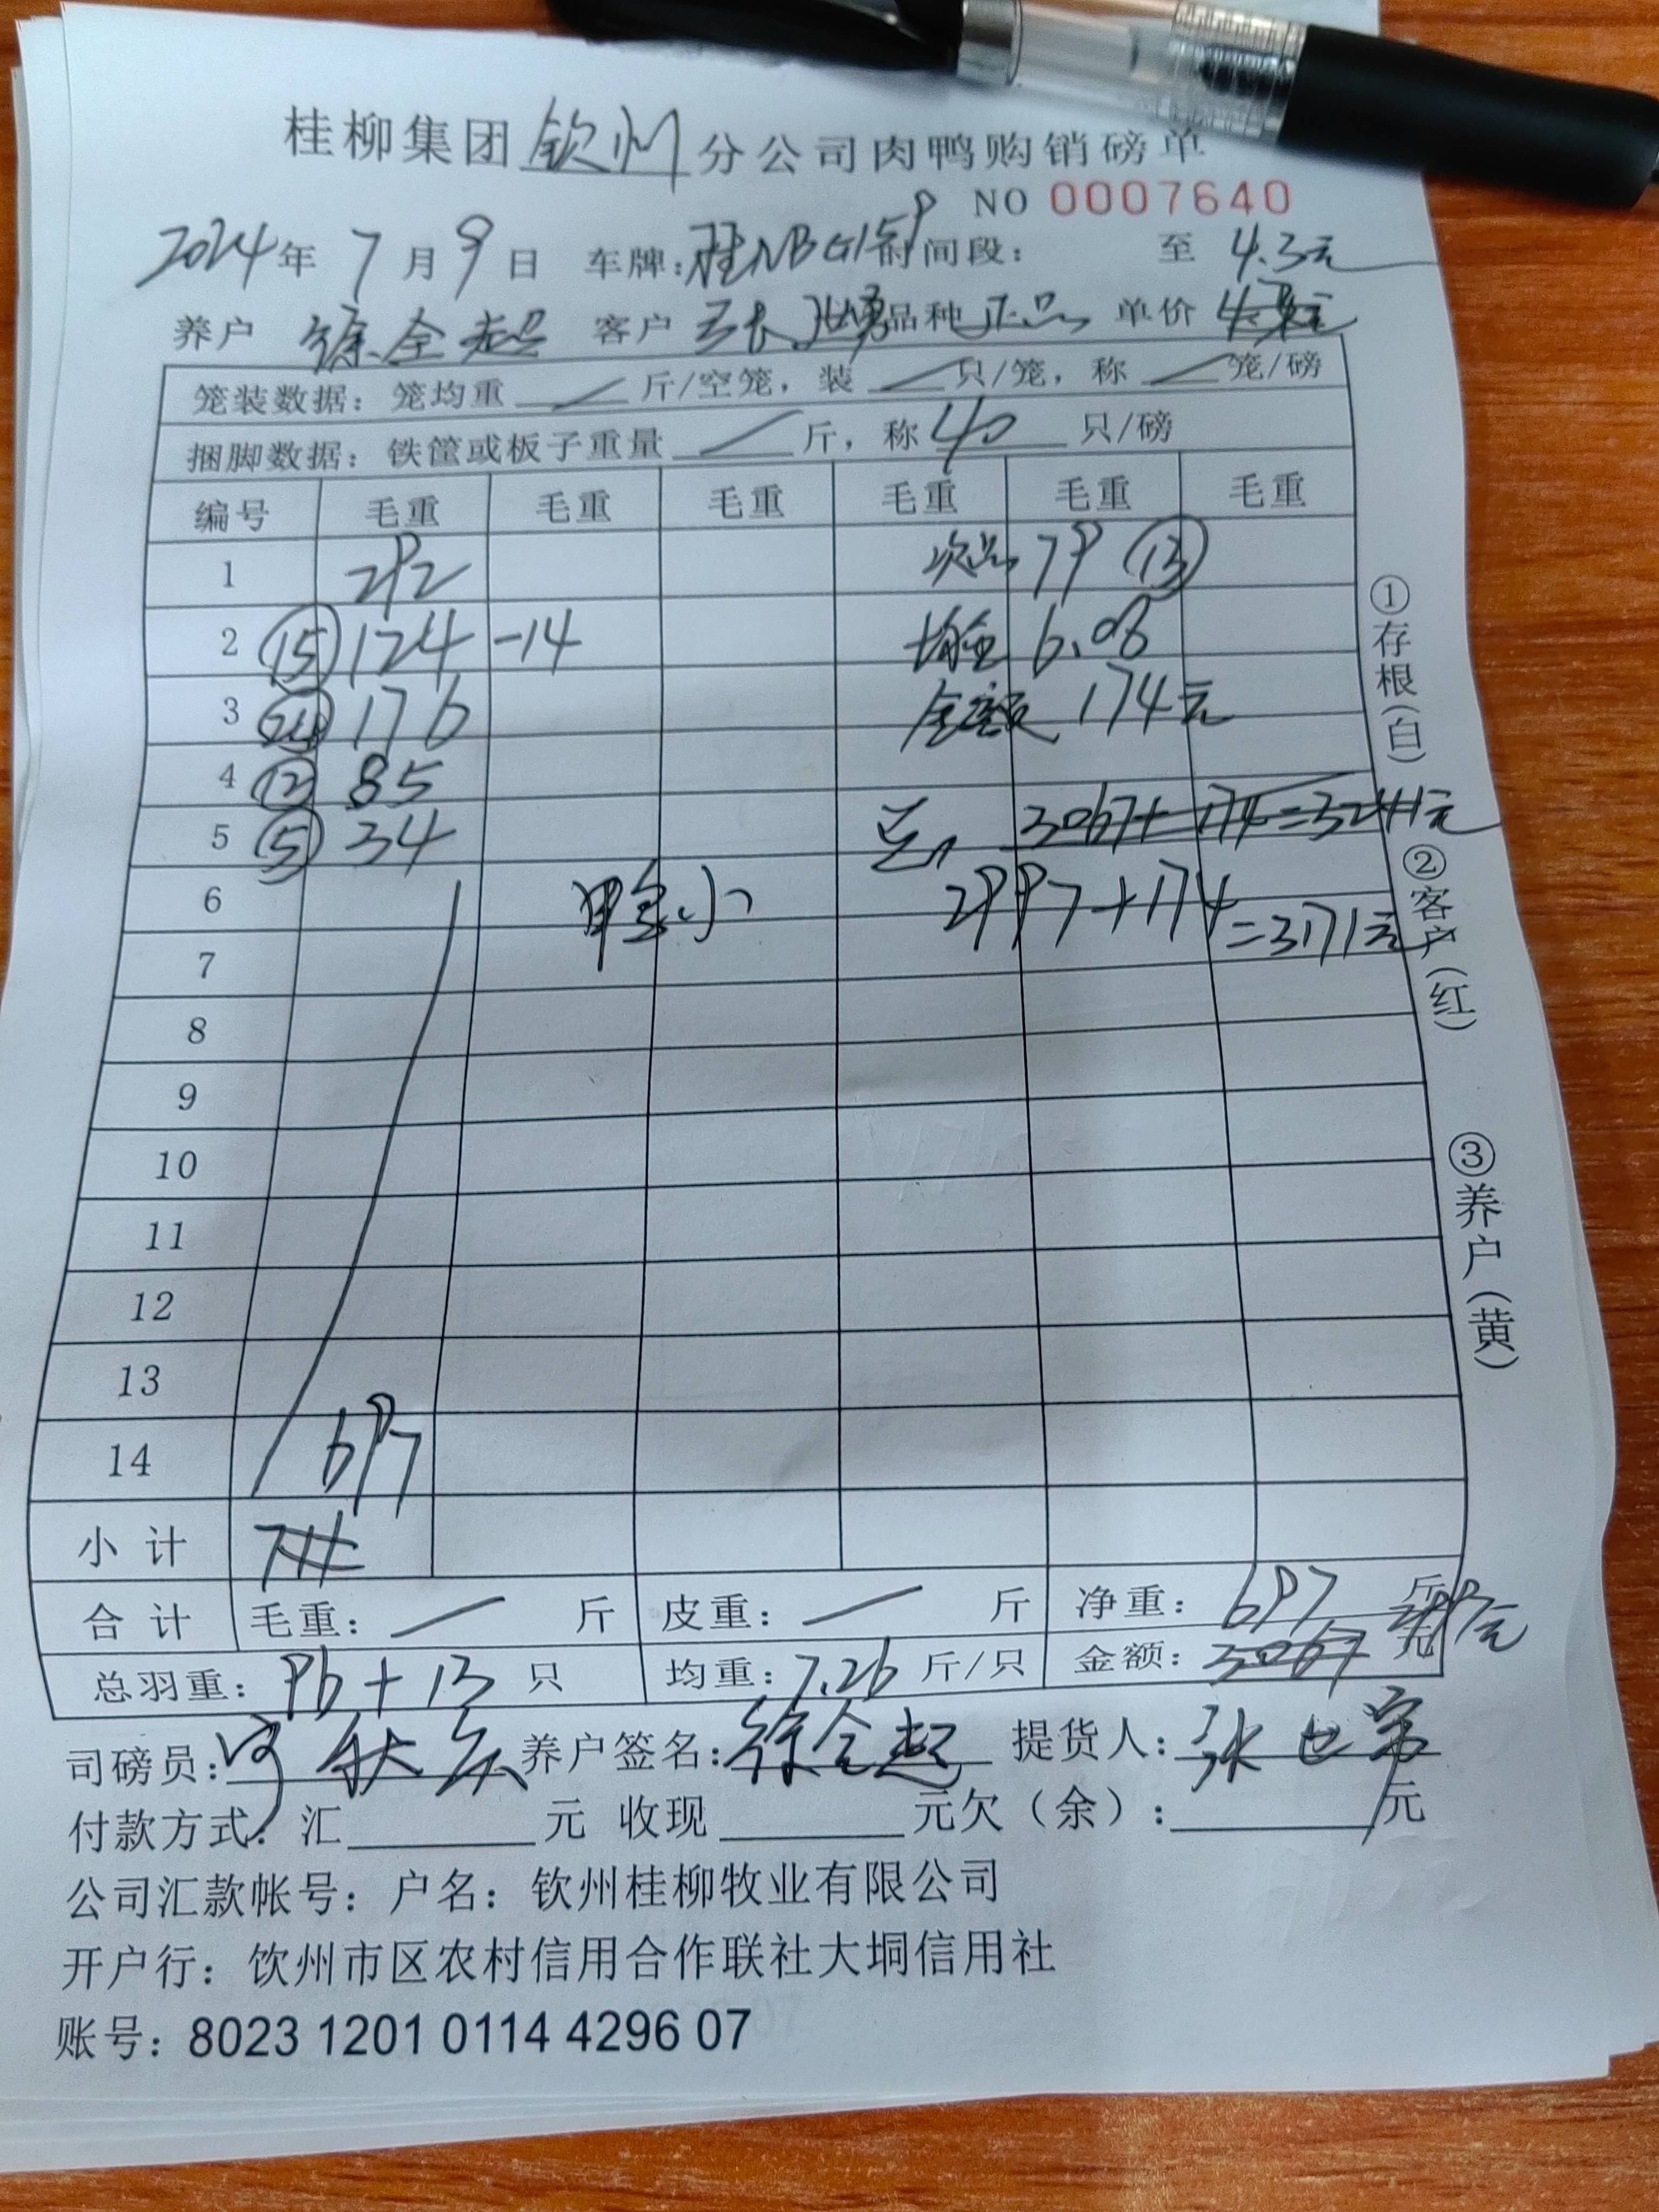 桂柳集团钦州分公司肉鸭购销磅单
NO 0007640
2024年7月9日 车牌:桂NBG159 时间段: 至 4.3元
养户 徐全起 客户 张世勇 品种 正品 单价
笼装数据:笼均重 / 斤/空笼,装 / 只/笼,称 / 笼/磅
捆脚数据:铁筐或板子重量 / 斤,称 40 只/磅
编号 毛重 毛重 毛重 毛重 毛重 毛重
1 292 次品 79 ⑬
2 ⑮ 124 -14 均重 6.08
3 ㉔ 176 金额 174元
4 ⑫ 85
5 ⑤ 34 总, 3067+174=3241元
6 鸭小 2997+174
7 =3171元
8
9
10
11
12
13
14 697
小计
合计 毛重: / 斤 皮重: / 斤 净重: 697 斤
2997元
总羽重: 96+13 只 均重: 7.26 斤/只 金额: 3067 元
司磅员: 养户签名:徐全起 提货人:张世勇
付款方式:汇 元 收现 元欠(余): 元
公司汇款帐号:户名:钦州桂柳牧业有限公司
开户行:钦州市区农村信用合作联社大垌信用社
账号:8023 1201 0114 4296 07
①存根(白)
②客户(红)
③养户(黄)